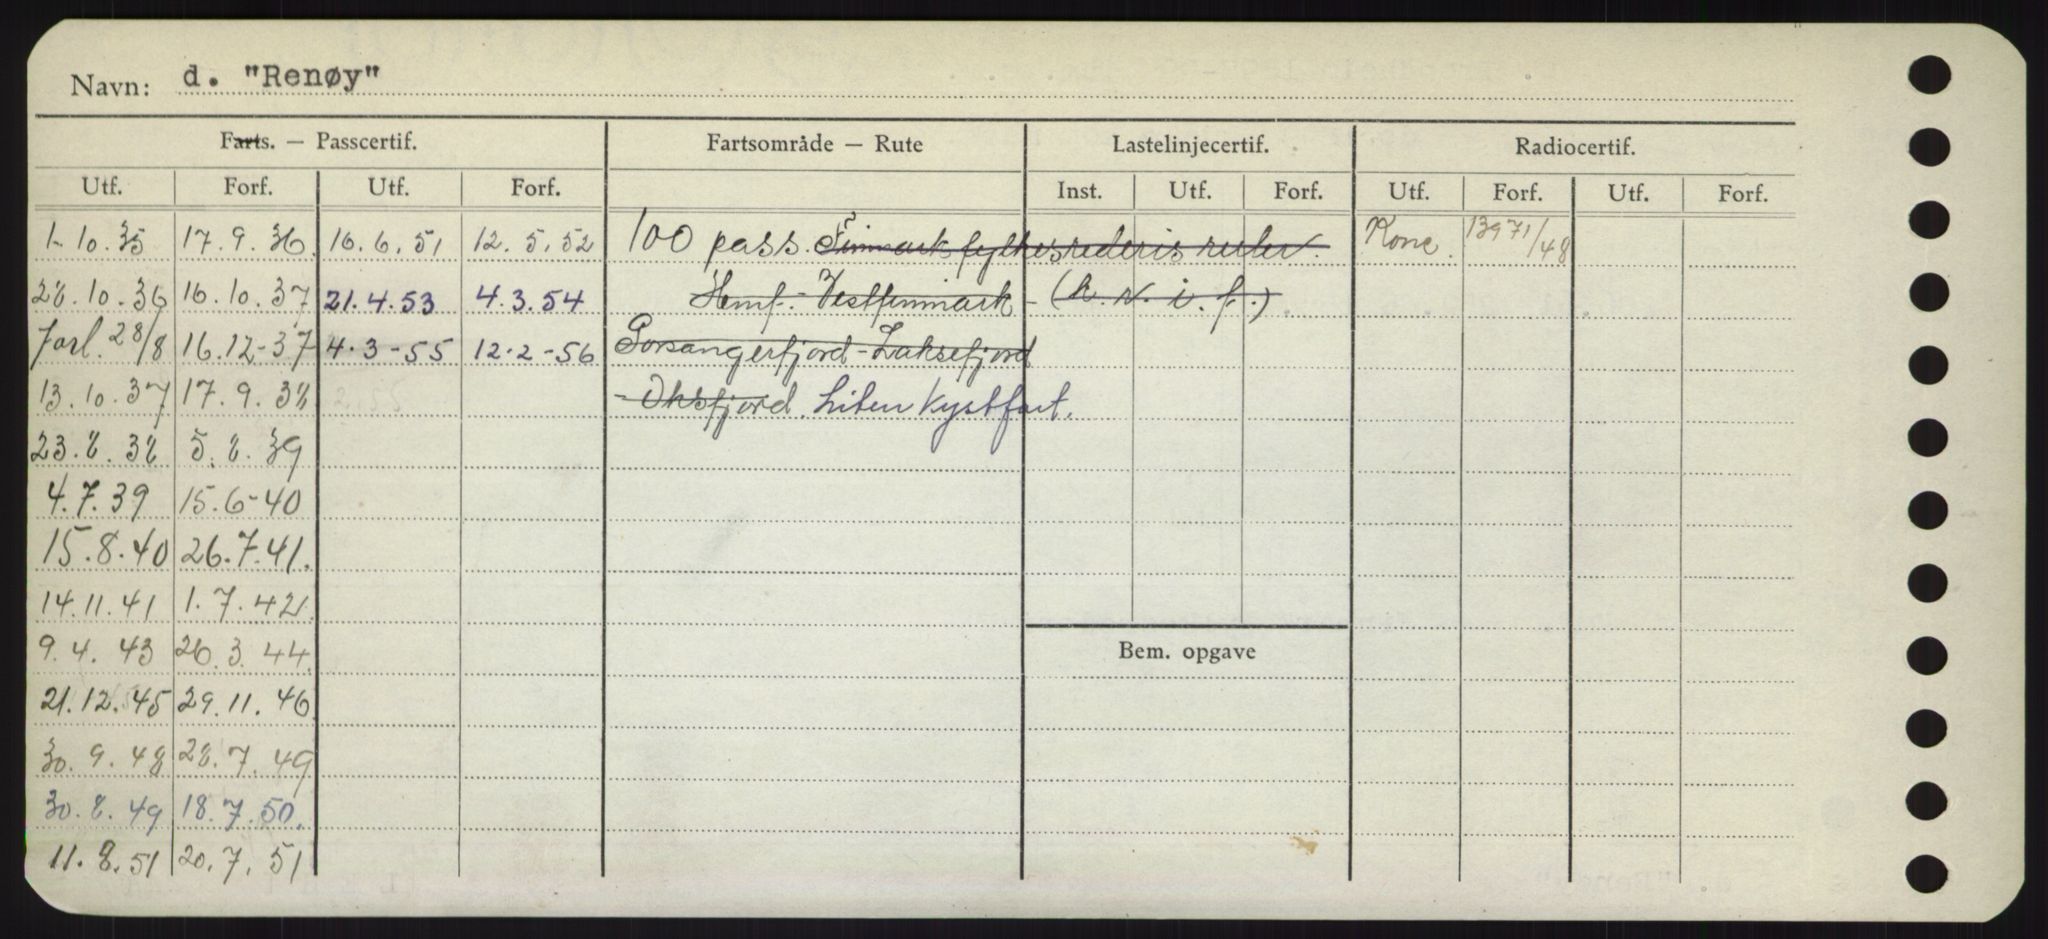 Navn: d. "Renøy"
Farts. — Passcertif. Fartsområde — Rute Lastelinjecertif. Radiocertif.
Utf. Forf. Utf. Forf. Inst. Utf. Forf. Utf. Forf. Utf. Forf.
1-10.35 17.9.36 16.6.51 12.5.52 100 pass. Finmark fylkesrederis ruter. Konc. 13971/48
28.10.36 16.10.37 21.4.53 4.3.54 Hmf. - Vestfinmark - (h.r.i.f.)
Forl. 28/8 16.12-37 4.3-55 12.2-56 Porsangerfjord - Laksefjord
13.10.37 17.9.38 - Oksfjord. Liten kystfart.
23.8.38 5.8.39
4.7.39 15.6-40
15.8.40 26.7.41.
14.11.41 1.7.42
9.4.43 26.3.44. Bem. opgave
21.12.45 29.11.46
30.9.48 28.7.49
30.8.49 18.7.50.
11.8.51 20.7.51